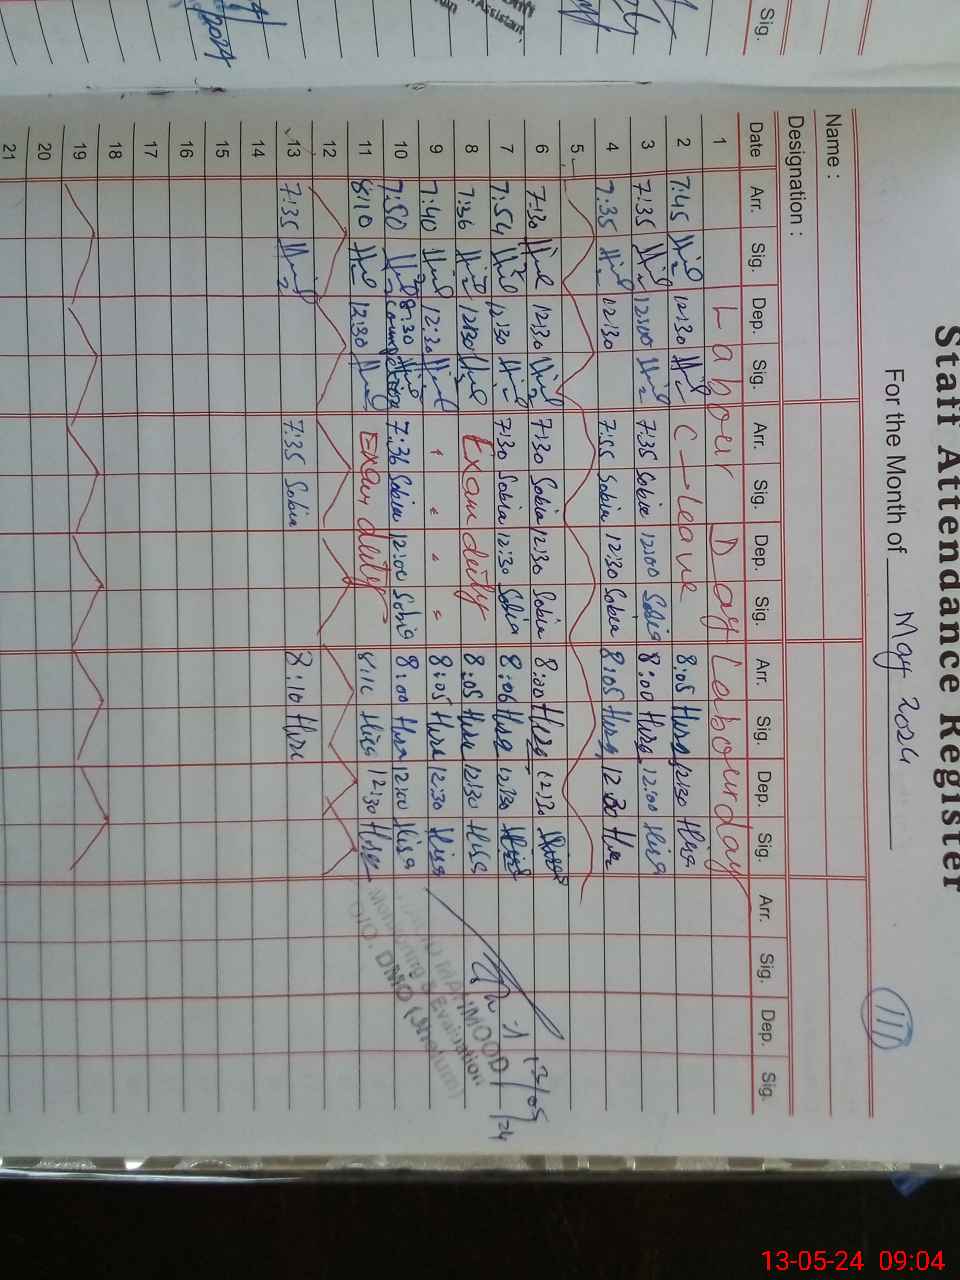 Staff Attendance Register
For the Month of May 2024
111
Name :
Designation :
Date Arr. Sig. Dep. Sig. Arr. Sig. Dep. Sig. Arr. Sig. Dep. Sig. Arr. Sig. Dep. Sig.
1 Labour Day Labour day
2 7:45 12:30 C-leave 8:05 Hira 12:30 Hira
3 7:35 12:00 7:35 Sobia 12:00 Sobia 8:00 Hira 12:00 Hira
4 7:35 12:30 7:55 Sobia 12:30 Sobia 8:05 Hira 12:30 Hira
5
6 7:30 12:30 7:30 Sobia 12:30 Sobia 8:00 Hira 12:30 Hira
7 7:54 12:30 7:30 Sobia 12:30 Sobia 8:06 Hira 12:30 Hira
8 7:36 12:30 Exam deity 8:05 Hira 12:30 Hira
9 7:40 12:30 " " " " 8:05 Hira 12:30 Hira
10 7:50 8:30 7:36 Sobia 12:00 Sobia 8:00 Hira 12:00 Hira
11 8:10 12:30 Exam deity 8:10 Hira 12:30 Hira
12
13 7:35 7:35 Sobia 8:10 Hira
14
15
16
17
18
19
20
21
13/05/24
MAHMOOD
Monitoring & Evaluation
O/O. DMO (Jhelum)
Sig.
Assistant
2024
13-05-24 09:04